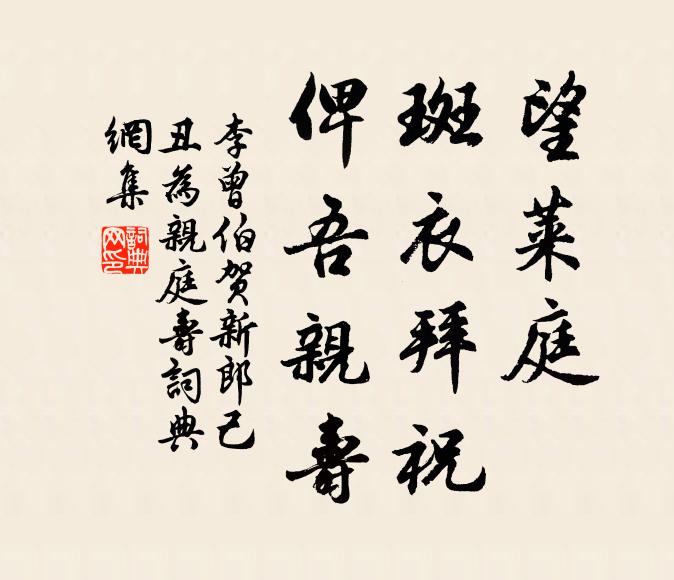 望莱庭
斑衣拜祝
俾吾親壽
李曾伯賀新郎己
丑為親庭壽詞典
網集
詞典網印